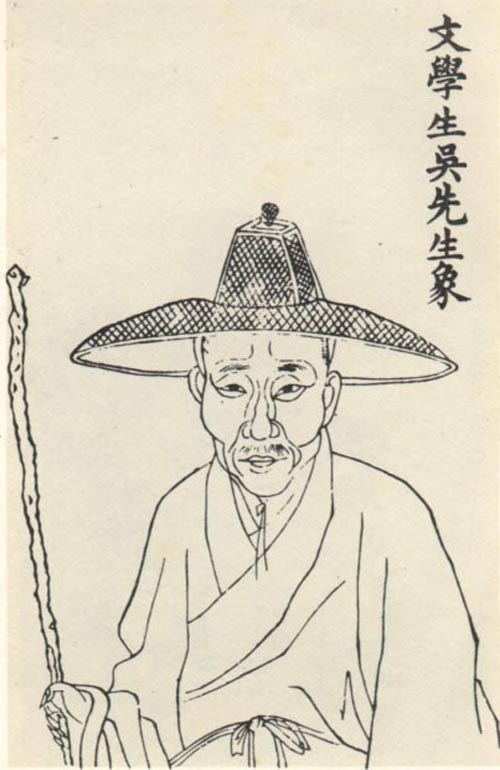 文學生吳先生象